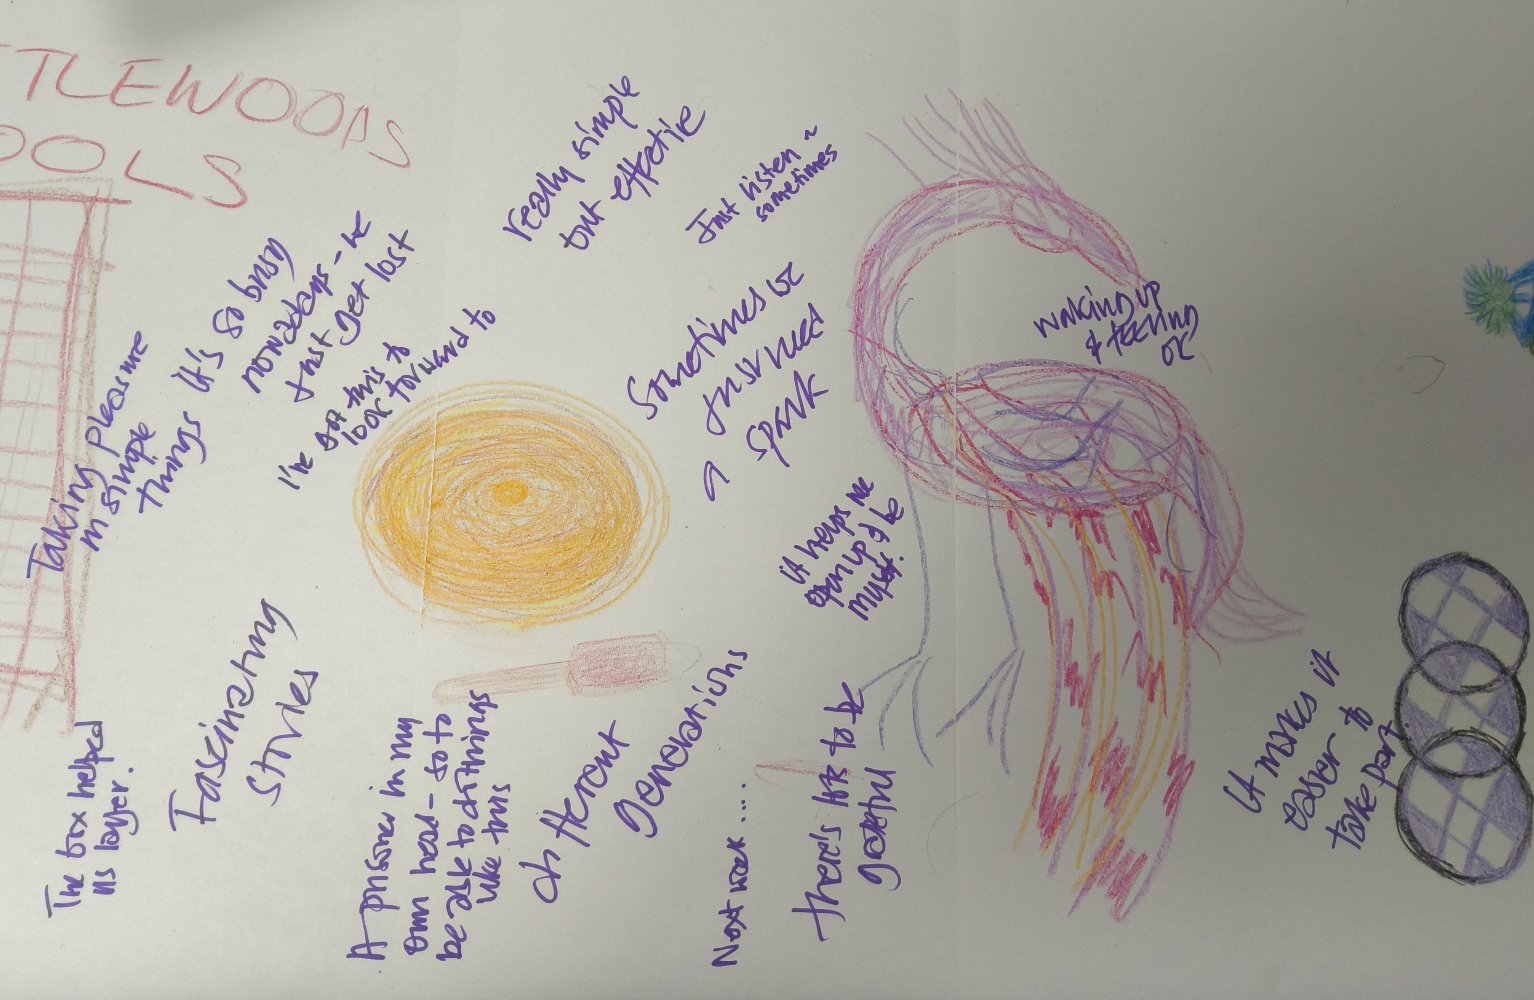 TLEWOODS
OOLS
really simple
but effective
Just listen ~
sometimes
It's so busy
nowadays - we
just get lost
Taking pleasure
in simple
things
I've got this to
look forward to
Sometimes we
just need
a spark
waking up
& feeling
OK
it helps me
open up & be
myself.
Fascinating
stories
The box helped
us
A prisoner in my
own head - so to
be able to do things
like this
different
generations
Next week ....
there's lots to be
grateful
It makes it
easier to
take part.